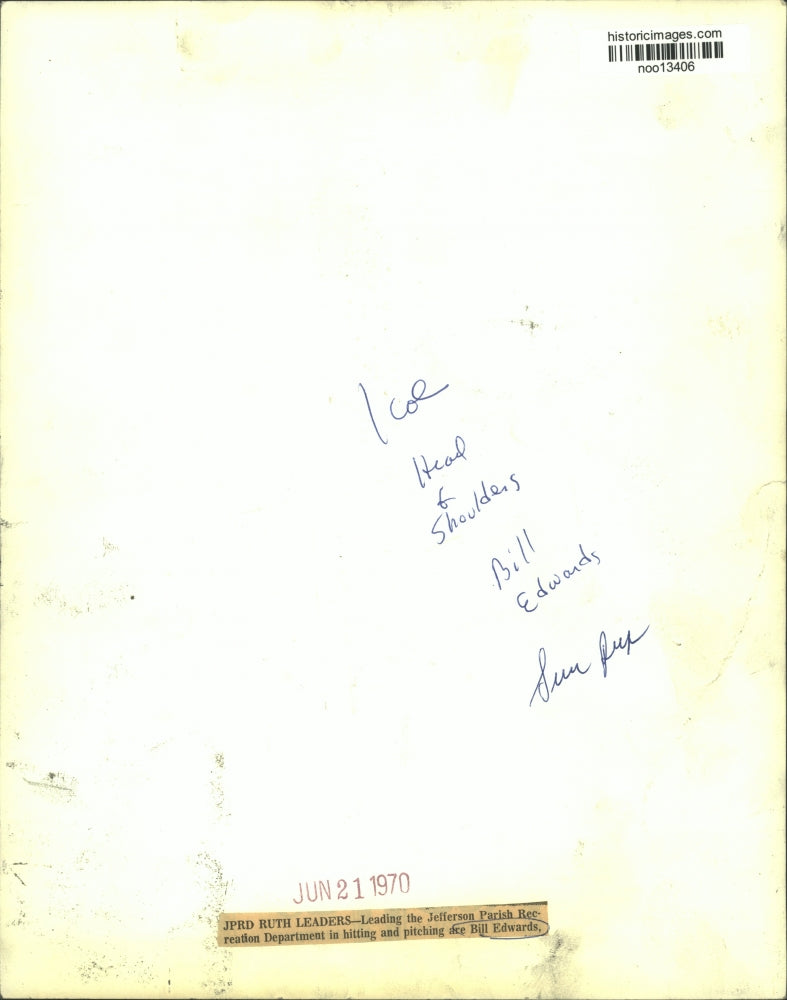 historicimages.com
noo13406
1 col
Head
&
Shoulders
Bill
Edwards
Sun
JUN 21 1970
JPRD RUTH LEADERS—Leading the Jefferson Parish Rec-
reation Department in hitting and pitching are Bill Edwards,